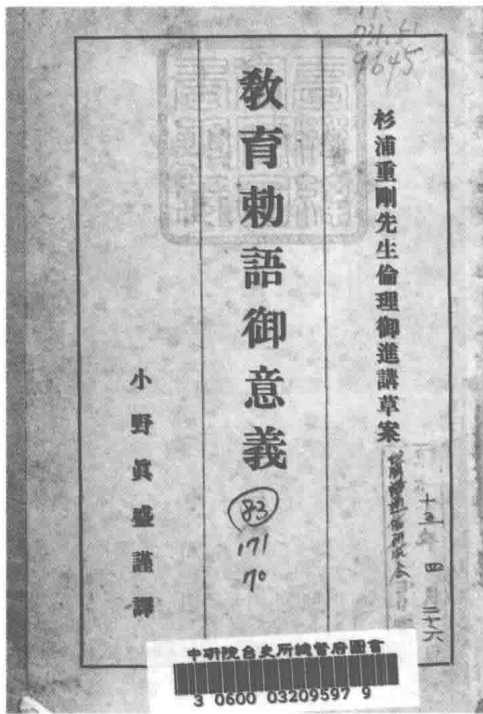 杉浦重剛先生倫理御進講草案
教育勅語御意義
小野眞盛謹譯
83
171
70
9645
十五年 四月 二十六
中研院台史所總督府圖書
3 0600 03209597 9